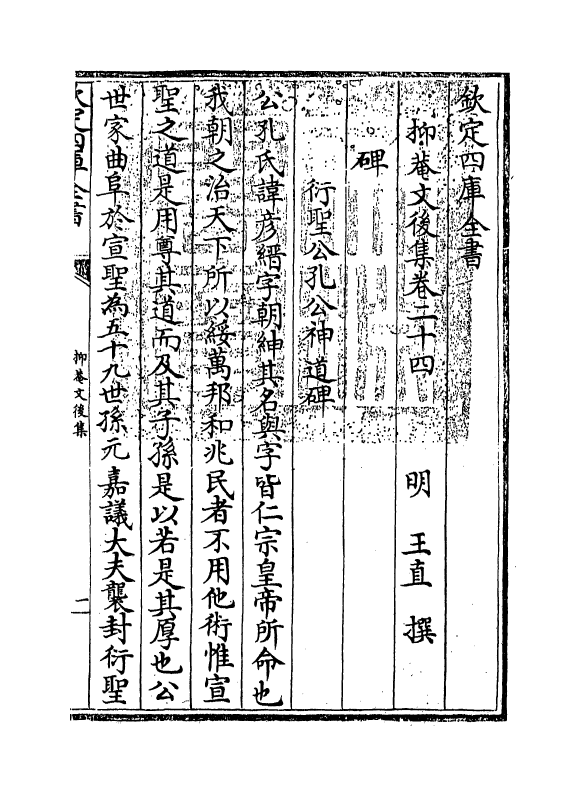 欽定四庫全書
抑菴文後集卷二十四
明 王直 撰
碑
衍聖公孔公神道碑
公孔氏諱彦縉字朝紳其名與字皆仁宗皇帝所命也
我朝之治天下所以綏萬邦和兆民者不用他術惟宣
聖之道是用尊其道而及其子孫是以若是其厚也公
世家曲阜於宣聖為五十九世孫元嘉議大夫襲封衍聖
欽定四庫全書
抑菴文後集